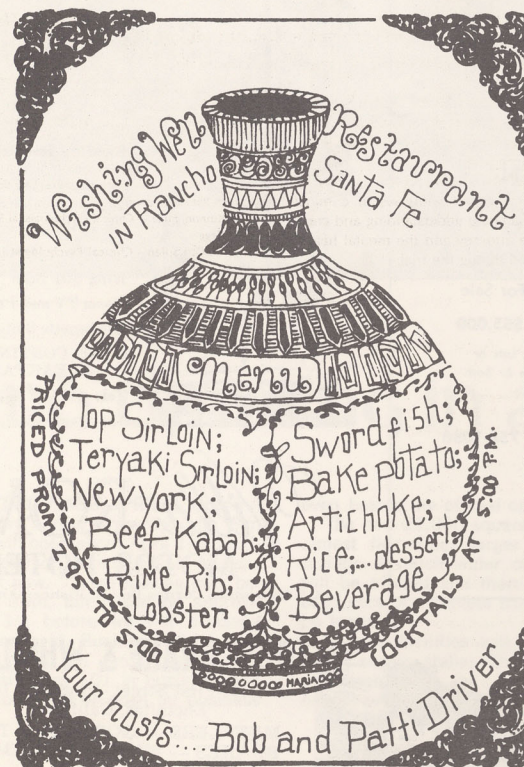 Wishing Well Restaurant
in Rancho Santa Fe
Menu
Top Sirloin;
Teryaki Sirloin;
New York;
Beef Kabab;
Prime Rib;
Lobster
Swordfish;
Bake potato;
Artichoke;
Rice;...dessert;
Beverage
PRICED FROM 2.95 TO 5.00
COCKTAILS AT 5:00 P.M.
MARIADO
Your hosts....Bob and Patti Driver